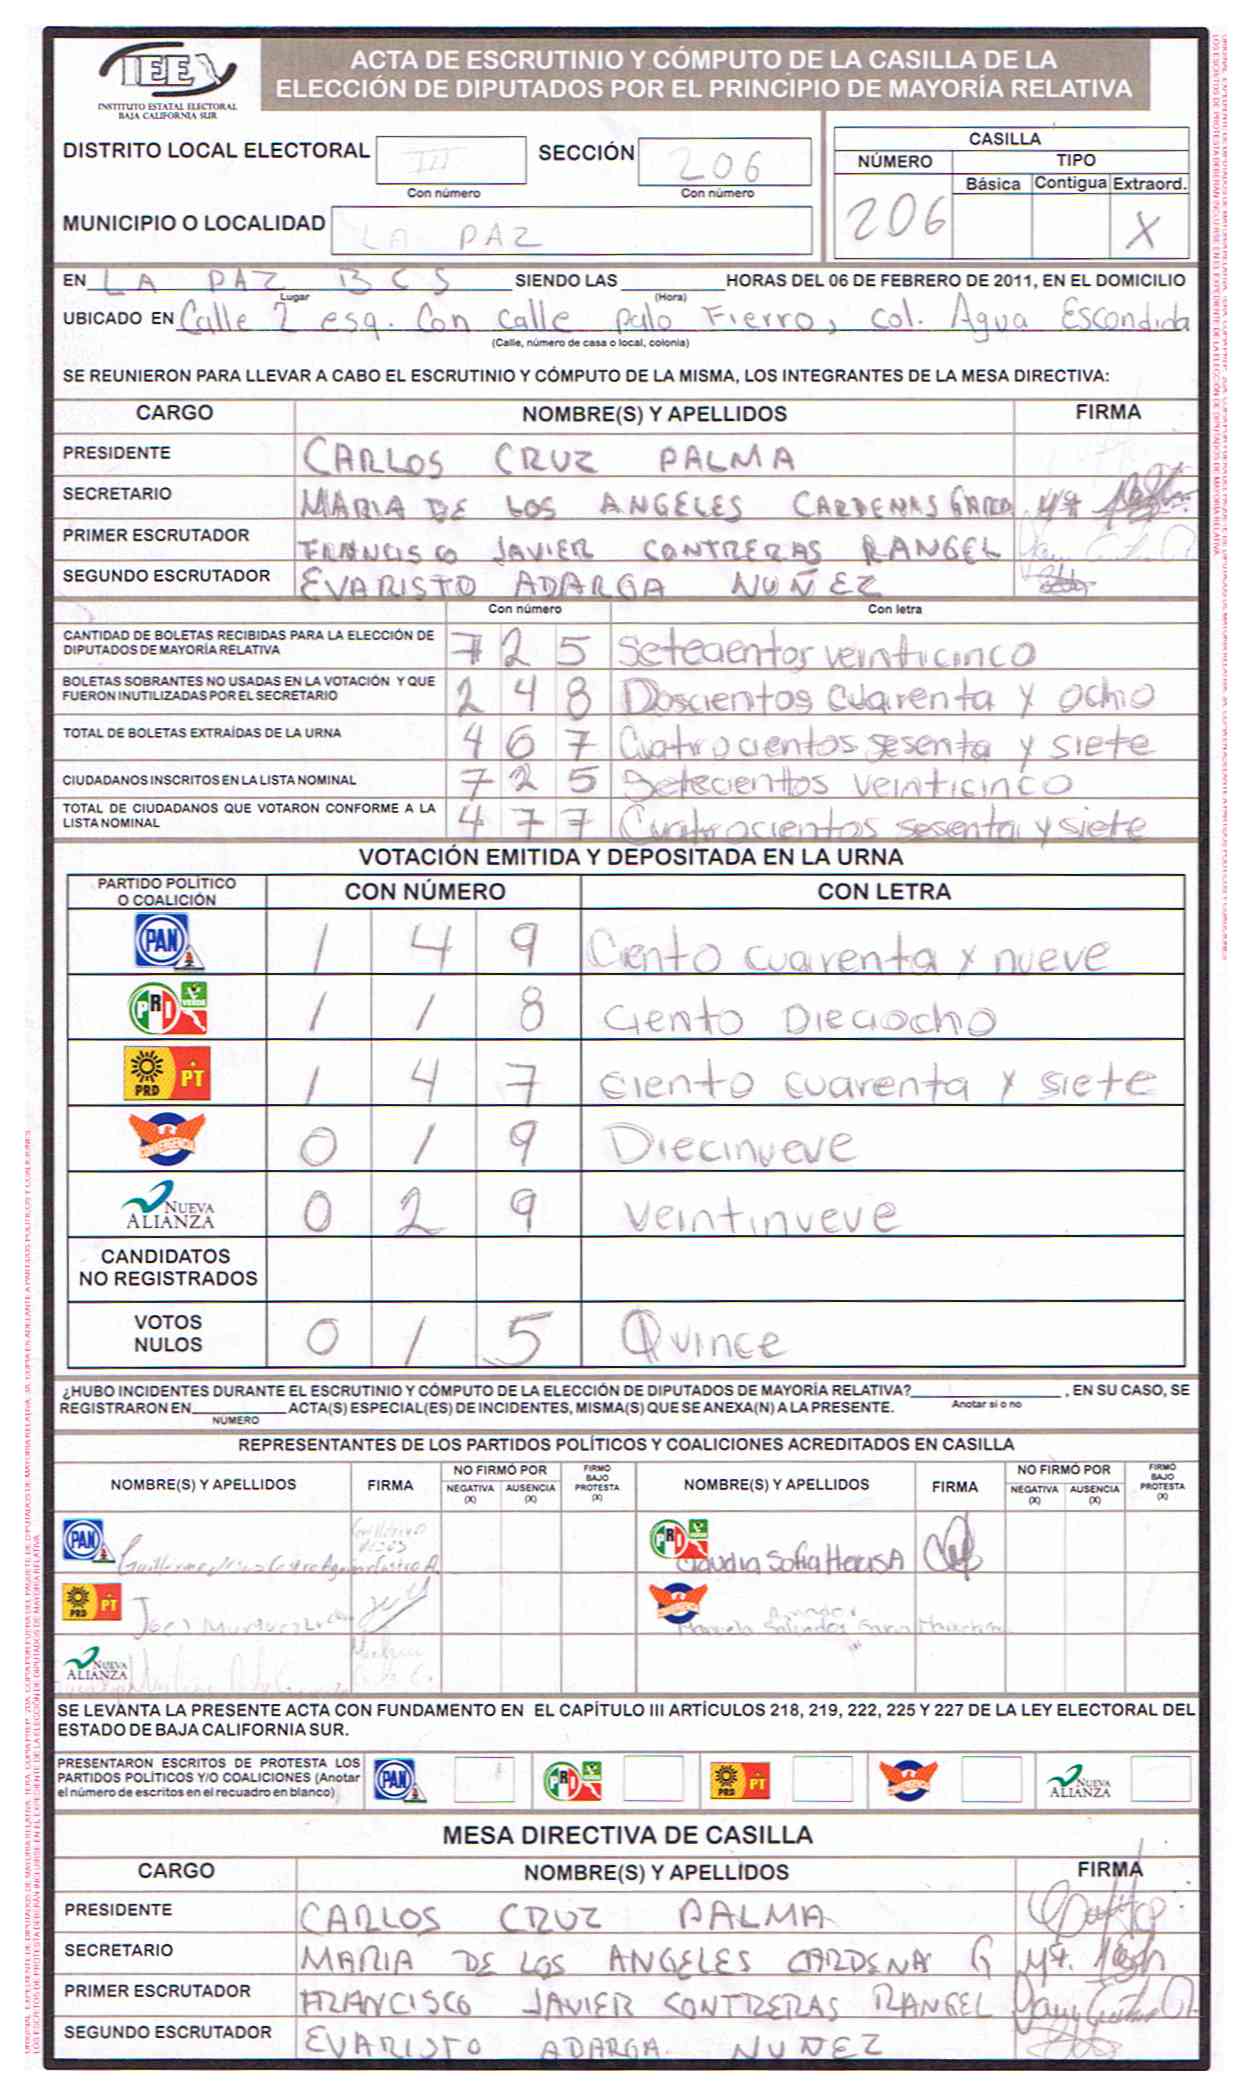 IEE
INSTITUTO ESTATAL ELECTORAL
BAJA CALIFORNIA SUR
ACTA DE ESCRUTINIO Y CÓMPUTO DE LA CASILLA DE LA
ELECCIÓN DE DIPUTADOS POR EL PRINCIPIO DE MAYORÍA RELATIVA
DISTRITO LOCAL ELECTORAL III SECCIÓN 206
Con número Con número
MUNICIPIO O LOCALIDAD LA PAZ
CASILLA
NÚMERO TIPO
Básica Contigua Extraord.
206 X
EN LA PAZ BCS SIENDO LAS HORAS DEL 06 DE FEBRERO DE 2011, EN EL DOMICILIO
Lugar (Hora)
UBICADO EN Calle 2 esq. Con calle palo Fierro, col. Agua Escondida
(Calle, número de casa o local, colonia)
SE REUNIERON PARA LLEVAR A CABO EL ESCRUTINIO Y CÓMPUTO DE LA MISMA, LOS INTEGRANTES DE LA MESA DIRECTIVA:
CARGO NOMBRE(S) Y APELLIDOS FIRMA
PRESIDENTE CARLOS CRUZ PALMA
SECRETARIO MARIA DE LOS ANGELES CARDENAS
PRIMER ESCRUTADOR FRANCISCO JAVIER CONTRERAS RANGEL
SEGUNDO ESCRUTADOR EVARISTO ADARGA NUÑEZ
Con número Con letra
CANTIDAD DE BOLETAS RECIBIDAS PARA LA ELECCIÓN DE
DIPUTADOS DE MAYORÍA RELATIVA 725 Setecientos veinticinco
BOLETAS SOBRANTES NO USADAS EN LA VOTACIÓN Y QUE
FUERON INUTILIZADAS POR EL SECRETARIO 248 Doscientos cuarenta y ocho
TOTAL DE BOLETAS EXTRAÍDAS DE LA URNA 467 Cuatrocientos sesenta y siete
CIUDADANOS INSCRITOS EN LA LISTA NOMINAL 725 Setecientos veinticinco
TOTAL DE CIUDADANOS QUE VOTARON CONFORME A LA
LISTA NOMINAL 477 Cuatrocientos sesenta y siete
VOTACIÓN EMITIDA Y DEPOSITADA EN LA URNA
PARTIDO POLÍTICO
O COALICIÓN CON NÚMERO CON LETRA
PAN 1 4 9 Ciento cuarenta y nueve
PRI VERDE 1 1 8 Ciento Dieciocho
PRD PT 1 4 7 ciento cuarenta y siete
CONVERGENCIA 0 1 9 Diecinueve
NUEVA ALIANZA 0 2 9 Veintinueve
CANDIDATOS
NO REGISTRADOS
VOTOS
NULOS 0 1 5 Quince
¿HUBO INCIDENTES DURANTE EL ESCRUTINIO Y CÓMPUTO DE LA ELECCIÓN DE DIPUTADOS DE MAYORÍA RELATIVA? , EN SU CASO, SE
REGISTRARON EN ACTA(S) ESPECIAL(ES) DE INCIDENTES, MISMA(S) QUE SE ANEXA(N) A LA PRESENTE. Anotar si o no
NÚMERO
REPRESENTANTES DE LOS PARTIDOS POLÍTICOS Y COALICIONES ACREDITADOS EN CASILLA
NOMBRE(S) Y APELLIDOS FIRMA NO FIRMÓ POR NEGATIVA (X) AUSENCIA (X) FIRMÓ BAJO PROTESTA (X) NOMBRE(S) Y APELLIDOS FIRMA NO FIRMÓ POR NEGATIVA (X) AUSENCIA (X) FIRMÓ BAJO PROTESTA (X)
PAN PRI VERDE Claudia Sofia
PRD PT CONVERGENCIA Salvador
NUEVA ALIANZA
SE LEVANTA LA PRESENTE ACTA CON FUNDAMENTO EN EL CAPÍTULO III ARTÍCULOS 218, 219, 222, 225 Y 227 DE LA LEY ELECTORAL DEL
ESTADO DE BAJA CALIFORNIA SUR.
PRESENTARON ESCRITOS DE PROTESTA LOS
PARTIDOS POLÍTICOS Y/O COALICIONES (Anotar
el número de escritos en el recuadro en blanco)
PAN PRI VERDE PRD PT CONVERGENCIA NUEVA ALIANZA
MESA DIRECTIVA DE CASILLA
CARGO NOMBRE(S) Y APELLIDOS FIRMA
PRESIDENTE CARLOS CRUZ PALMA
SECRETARIO MARIA DE LOS ANGELES CARDENA G
PRIMER ESCRUTADOR FRANCISCO JAVIER CONTRERAS RANGEL
SEGUNDO ESCRUTADOR EVARISTO ADARGA NUÑEZ